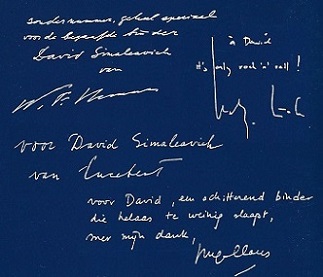 zondernummer, geheel speciaal
voor de begaafde binder
David Simaleavich
van
à David
it's only rock 'n' roll !
voor David Simaleavich
van Lucebert
voor David, een schitterend binder
die helaas te weinig slaapt,
met mijn dank,
Hugo Claus